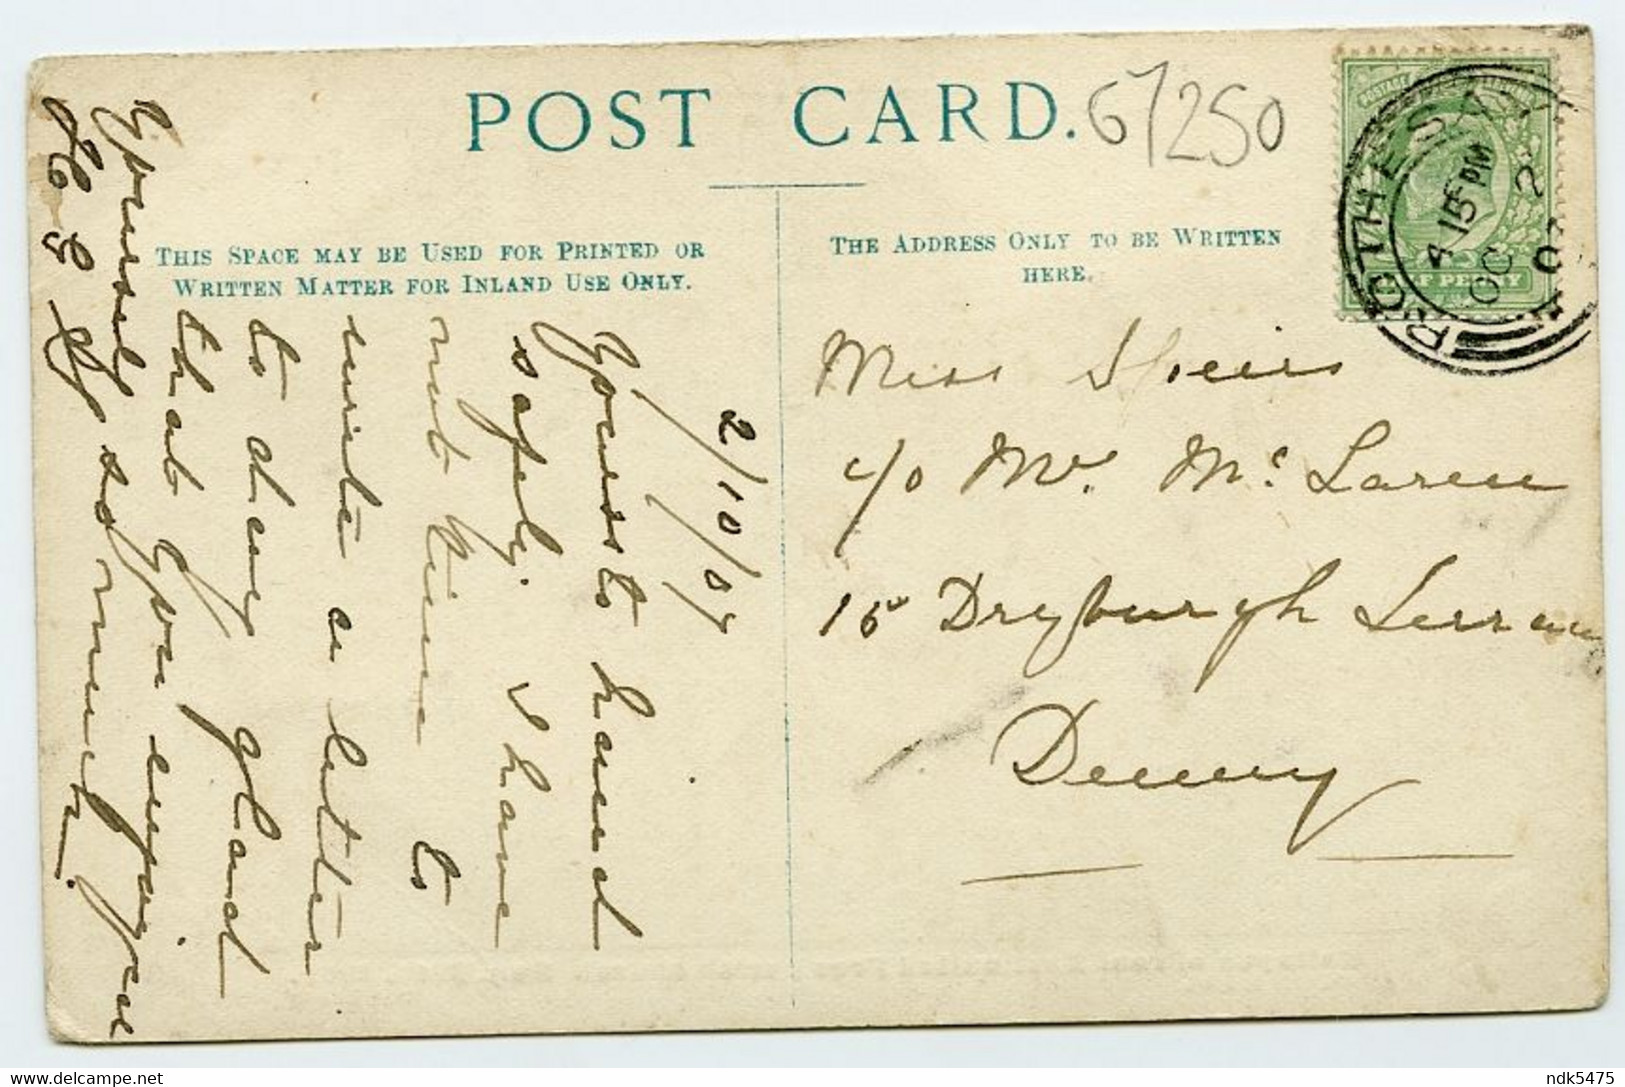 POST CARD.
6/250
THIS SPACE MAY BE USED FOR PRINTED OR
WRITTEN MATTER FOR INLAND USE ONLY.
THE ADDRESS ONLY TO BE WRITTEN
HERE.
ROTHESAY
4 15 PM
OC 2
07
POSTAGE
HALF PENNY
2/10/07
Yours to hand
safely. I have
not time to
write a letter
to day glad
that you enjoyed
yourself so much.
Miss Speirs
c/o Mrs McLaren
15 Dryburgh Terrace
Denny
ndk5475